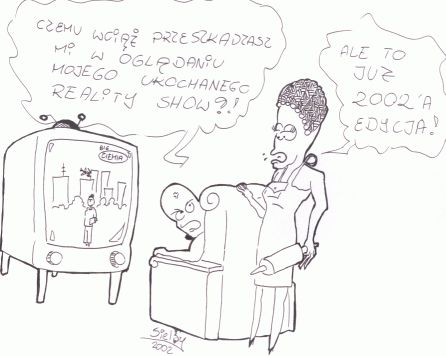 CZEMU WCIĄŻ PRZESZKADZASZ
MI W OGLĄDANIU
MOJEGO UKOCHANEGO
REALITY SHOW?!
ALE TO
JUŻ
2002'A
EDYCJA!
BIG
ZIEMIA
2002